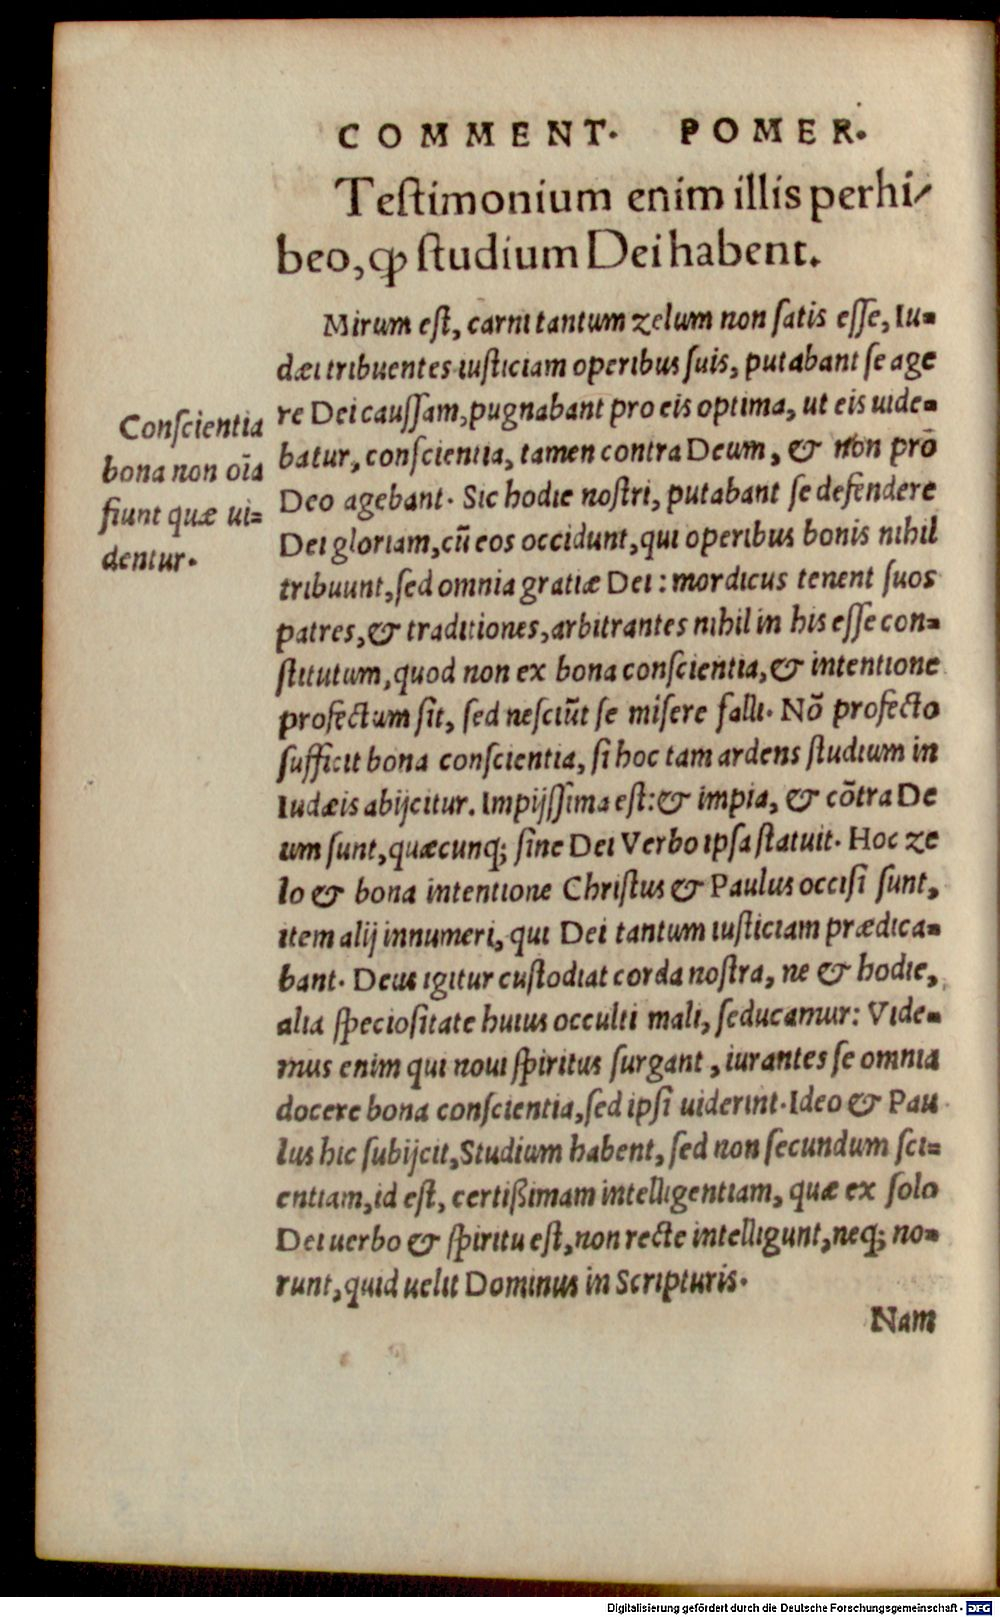 COMMENT. POMER.
Teſtimonium enim illis perhi-
beo, ꝙ ſtudium Dei habent.
Mirum eſt, carni tantum zelum non ſatis eſſe, Iu-
dæi tribuentes iuſticiam operibus ſuis, putabant ſe age
re Dei cauſſam, pugnabant pro eis optima, ut eis uide-
batur, conſcientia, tamen contra Deum, & non prō
Deo agebant. Sic hodie noſtri, putabant ſe defendere
Dei gloriam, cū eos occidunt, qui operibus bonis nihil
tribuunt, ſed omnia gratiæ Dei: mordicus tenent ſuos
patres, & traditiones, arbitrantes nihil in his eſſe con-
ſtitutum, quod non ex bona conſcientia, & intentione
profectum ſit, ſed neſciūt ſe miſere falli. Nō profecto
ſufficit bona conſcientia, ſi hoc tam ardens ſtudium in
Iudæis abijcitur. Impijſſima eſt: & impia, & cōtra De
um ſunt, quæcunq; ſine Dei Verbo ipſa ſtatuit. Hoc ze
lo & bona intentione Chriſtus & Paulus occiſi ſunt,
item alij innumeri, qui Dei tantum iuſticiam prædica-
bant. Deus igitur cuſtodiat corda noſtra, ne & hodie,
alia ſpecioſitate huius occulti mali, ſeducamur: Vide-
mus enim qui noui ſpiritus ſurgant, iurantes ſe omnia
docere bona conſcientia, ſed ipſi uiderint. Ideo & Pau
lus hic ſubijcit, Studium habent, ſed non ſecundum ſci-
entiam, id eſt, certißimam intelligentiam, quæ ex ſolo
Dei uerbo & ſpiritu eſt, non recte intelligunt, neq; no-
runt, quid uelit Dominus in Scripturis.
Nam
Conſcientia
bona non oīa
fiunt quæ ui-
dentur.
Digitalisierung gefördert durch die Deutsche Forschungsgemeinschaft - DFG